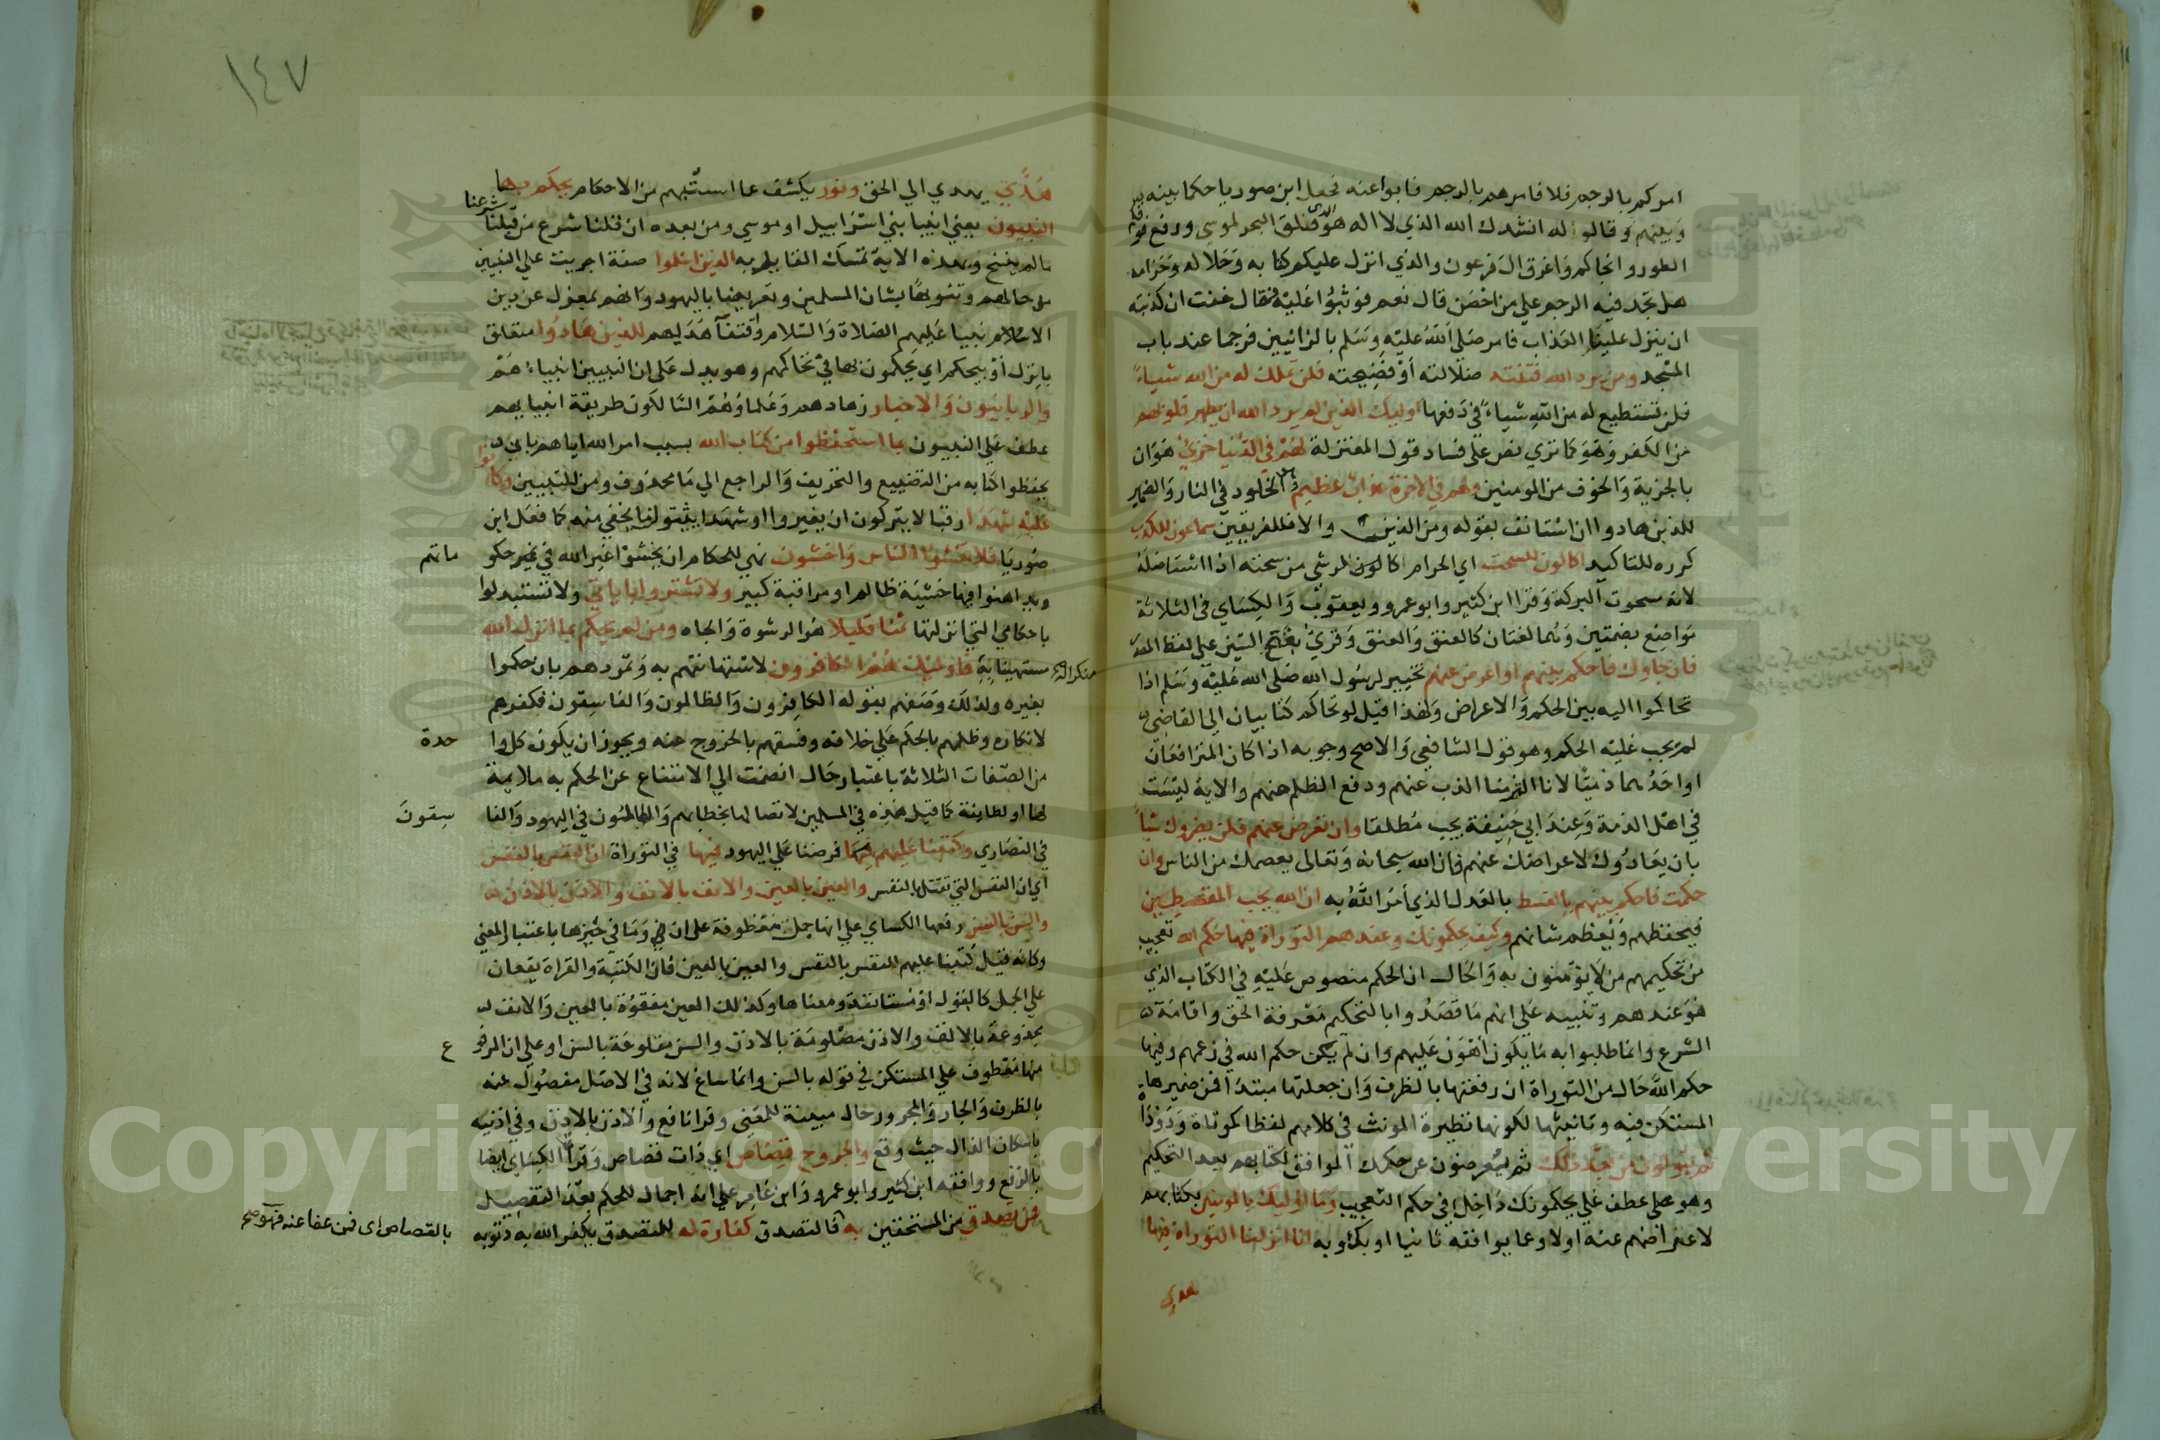 امركم بالرجم فلا فامرهم بالرجم فابوا عنه فجعل ابن صوريا حكما بينه
وبينهم وقالوا له انشدك الله الذي لا اله الا هو الذي فلق البحر لموسى ورفع فوقكم
الطور وانجاكم واغرق ال فرعون والذي انزل عليكم كتابه وحلاله وحرامه
هل تجد فيه الرجم على من احصن قال نعم فوثبوا عليه فقال خفت ان كذبته
ان ينزل علينا العذاب فامر صلى الله عليه وسلم بالزانيين فرجما عند باب
المسجد ومن يرد الله فتنته ضلالته او فضيحته فلن تملك له من الله شيا
فلن تستطيع له من الله شياء في دفعها اوليك الذين لم يرد الله ان يطهر قلوبهم
من الكفر وهو كما ترى نص على فساد قول المعتزلة لهم في الدنيا خزي هوان
بالجزية والخوف من المومنين ولهم في الاخرة عذاب عظيم وهو الخلود في النار والضمير
للذين هادوا ان استانف بقوله ومن الذين والا فللفريقين سماعون للكذب
كرره للتاكيد اكالون للسحت اي الحرام كالرشى من سحته اذا استاصله
لانه مسحوت البركة وقرا ابن كثير وابو عمرو ويعقوب والكساي في الثلاثة
مواضع بضمتين وهما لغتان كالعنق والعنق وقرئ بفتح السين على لفظ المصدر
فان جاوك فاحكم بينهم او اعرض عنهم تخيير لرسول الله صلى الله عليه وسلم اذا
تحاكموا اليه بين الحكم والاعراض ولهذا قيل لو تحاكم كتابيان الى القاضي
لم يجب عليه الحكم وهو قول الشافعي والاصح وجوبه اذا كان المترافعان
او احدهما ذميا لانا التزمنا الذب عنهم ودفع الظلم عنهم والاية ليست
في اهل الذمة وعند ابي حنيفة يجب مطلقا وان تعرض عنهم فلن يضروك شيا
بان يعادوك لاعراضك عنهم فان الله سبحانه وتعالى يعصمك من الناس وان
حكمت فاحكم بينهم بالقسط بالعدل الذي امر الله به ان الله يحب المقسطين
فيحفظهم ويعظم شانهم وكيف يحكمونك وعندهم التوراة فيها حكم الله تعجيب
من تحكيمهم من لا يؤمنون به والحال ان الحكم منصوص عليه في الكتاب الذي
هو عندهم وتنبيه على انهم ما قصدوا بالتحكيم معرفة الحق واقامة
الشرع وانما طلبوا به ما يكون اهون عليهم وان لم يكن حكم الله في زعمهم وفيها
حكم الله حال من التوراة ان رفعتها بالظرف وان جعلتها مبتدأ فمن ضميرها
المستكن فيه وتانيثها لكونها نظيرة المونث في كلامهم لفظا كموماة ودوداة
ثم يتولون من بعد ذلك ثم يعرضون عن حكمك الموافق لكتابهم بعد التحكيم
وهو عطف على يحكمونك داخل في حكم التعجيب وما اوليك بالمومنين بكتابهم
لاعراضهم عنه اولا وعما يوافقه ثانيا او بك وبه انا انزلنا التوراة فيها
هدى
١٤٧
هدى يهدي الى الحق ونور يكشف عما استبهم من الاحكام يحكم بها
النبيون يعني انبيا بني اسرائيل او موسى ومن بعده ان قلنا شرع من قبلنا شرعنا
ما لم ينسخ وبهذه الاية تمسك القايل به الذين اسلموا صفة اجريت على النبيين
مدحا لهم وتنويها بشان المسلمين وتعريضا باليهود وانهم بمعزل عن دين
الانبياء عليهم الصلاة والسلام واقتفآ هديهم للذين هادوا متعلق
بانزل او بيحكم اي يحكمون بها في تحاكمهم وهو يدل على ان النبيين انبياءهم
والربانيون والاحبار زهادهم وعلماوهم السالكون طريقة انبيايهم
عطف على النبيون بما استحفظوا من كتاب الله بسبب امر الله اياهم بان
يحفظوا كتابه من التضييع والتحريف والراجع الى ما محذوف ومن للتبيين وكانوا
عليه شهدا رقبا لا يتركون ان يغيروا او شهدا يبينون ما يخفى منه كما فعل ابن
صوريا فلا تخشوا الناس واخشون نهي للحكام ان يخشوا غير الله في حكوماتهم
ويداهنوا فيها خشية ظالم او مراقبة كبير ولا تشتروا باياتي ولا تستبدلوا
باحكامي التي انزلتها ثمنا قليلا هو الرشوة والجاه ومن لم يحكم بما انزل الله
مستهينا به منكرا له فاوليك هم الكافرون لاستهانتهم به وتمردهم بان حكموا
بغيره ولذلك وصفهم بقوله الكافرون والظالمون والفاسقون فكفرهم
لانكاره وظلمهم بالحكم على خلافه وفسقهم بالخروج عنه ويجوز ان يكون كل واحدة
من الصفات الثلاثة باعتبار حال انضمت الى الامتناع عن الحكم به ملايمة
لها او لطايفة كما قيل هذه في المسلمين لاتصالها بخطابهم والظالمون في اليهود والفاسقون
في النصارى وكتبنا عليهم فيها فرضنا على اليهود فيها في التوراة ان النفس بالنفس
اي ان النفس التي تقتل بالنفس والعين بالعين والانف بالانف والاذن بالاذن
والسن بالسن رفعها الكساي على انها جمل معطوفة على ان وما في حيزها باعتبار المعنى
وكانه قيل كتبنا عليهم النفس بالنفس والعين بالعين فان الكتبة والقراة يقعان
على الجمل كالقول او مستانفة ومعناها وكذلك العين مفقؤة بالعين والانف
مجدوعة بالانف والاذن مصلومة بالاذن والسن مقلوعة بالسن او على ان المرفوع
منها معطوف على المستكن في قوله بالنفس وانما ساغ لانه في الاصل مفصول عنه
بالظرف والجار والمجرور حال مبينة للمعنى وقرا نافع والاذن بالاذن وفي اذنيه
باسكان الذال حيث وقع والجروح قصاص اي ذات قصاص وقرا الكساي ايضا
بالرفع ووافقه ابن كثير وابو عمرو وابن عامر على انه اجمال للحكم بعد التفصيل
فمن تصدق من المستحقين به بالقصاص اى فمن عفا عنه فهو فالتصدق كفارة له للمتصدق يكفر الله به ذنوبه